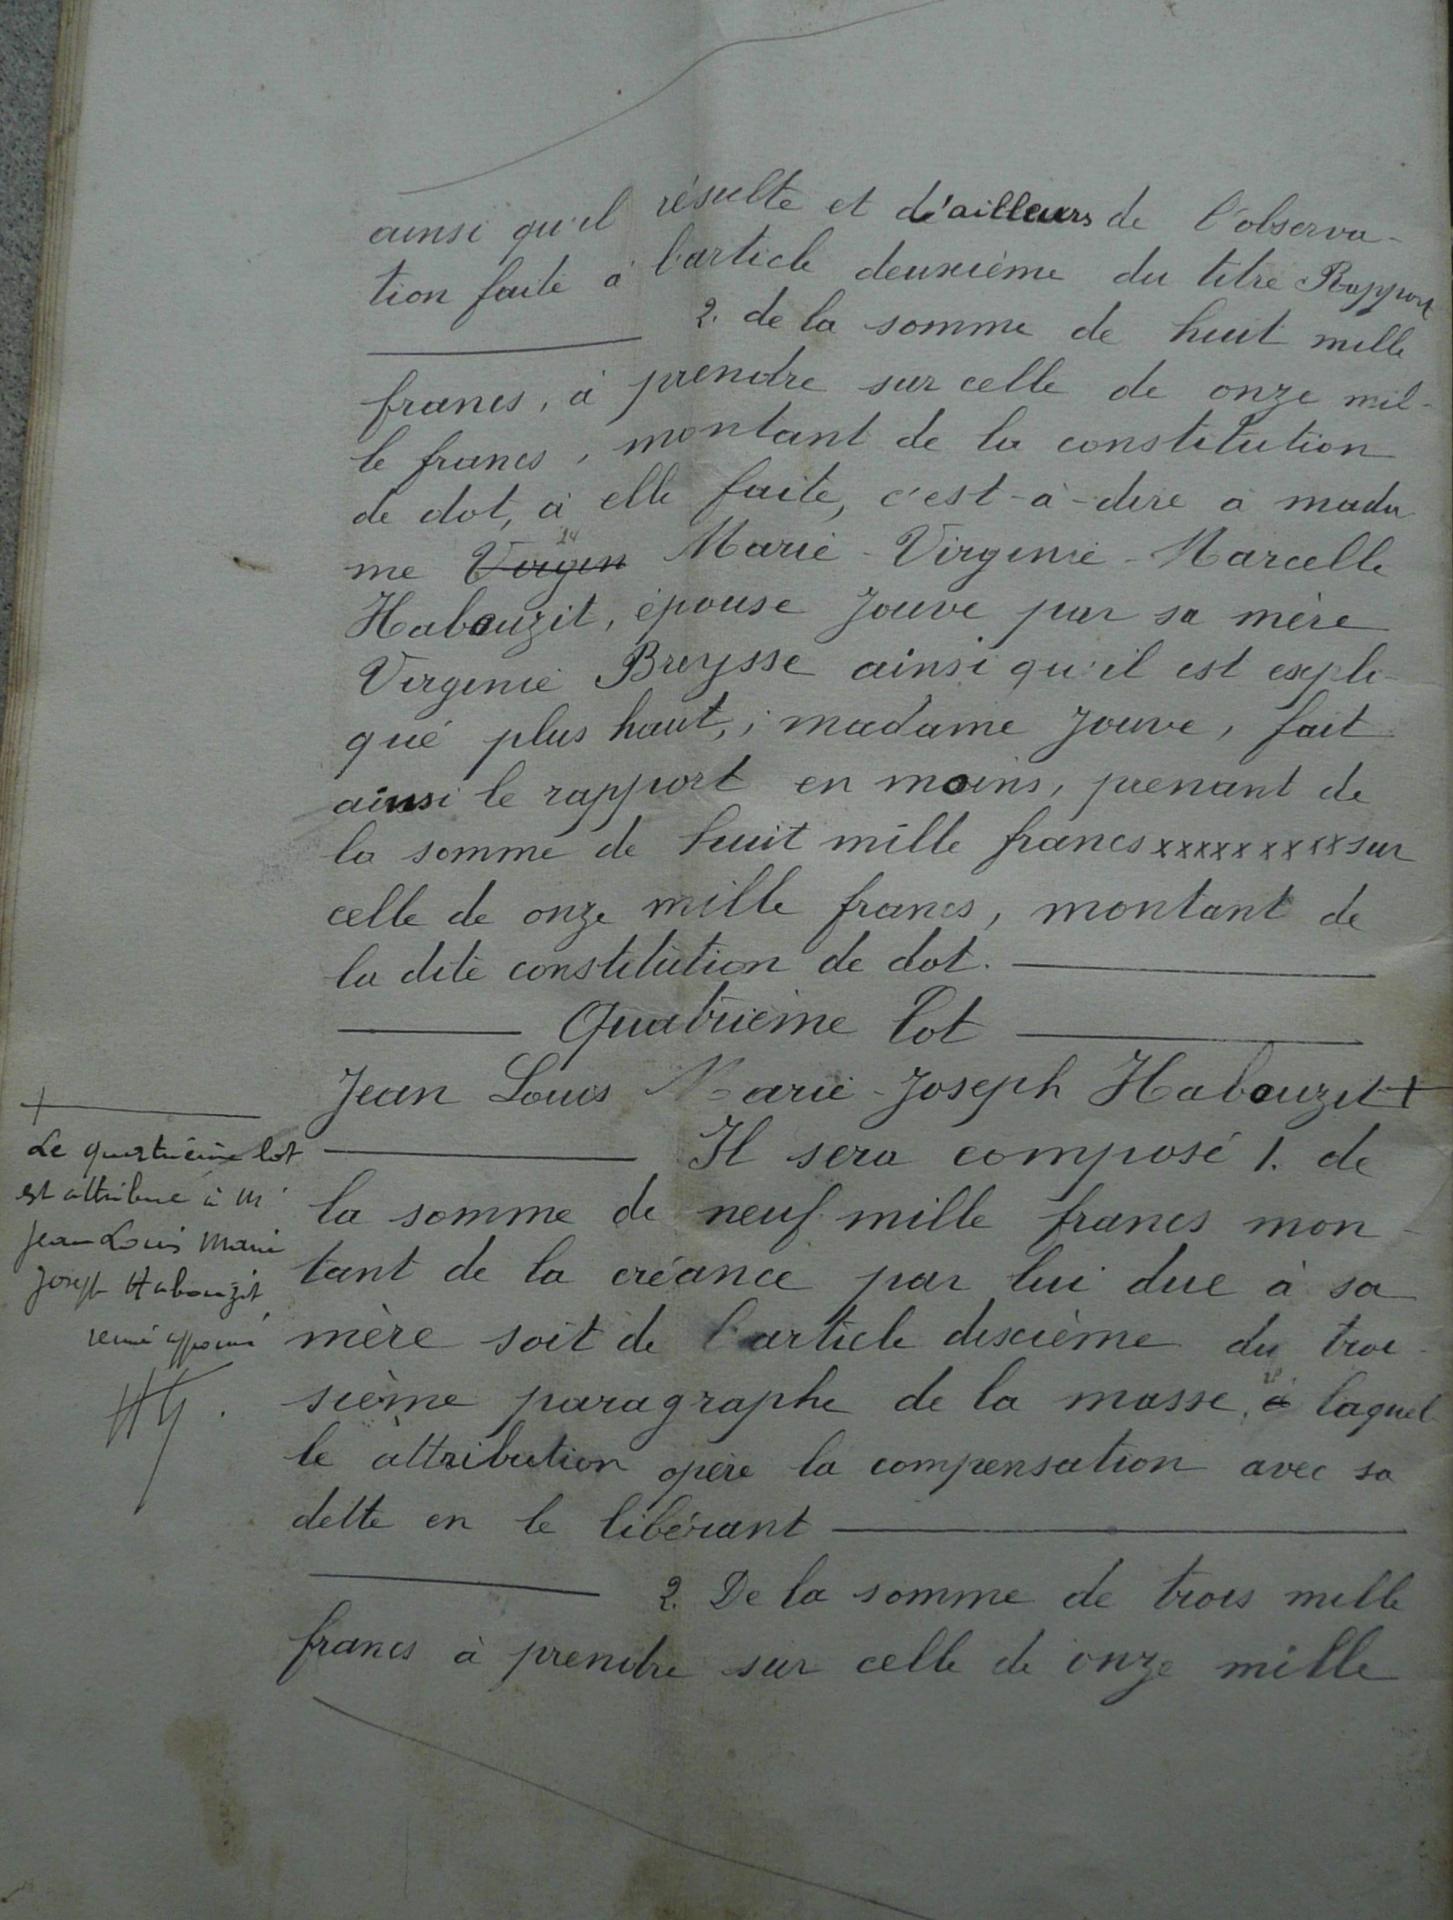 ainsi qu'il résulte et d'ailleurs de l'observa-
tion faite à l'article deuxième du titre Rapport
2. de la somme de huit mille
francs, à prendre sur celle de onze mil-
le francs, montant de la constitution
de dot, à elle faite, c'est-à-dire à mada
me Virgin Marie-Virginie-Marcelle
Habouzit, épouse Jouve par sa mère
Virginie Breysse ainsi qu'il est expli-
qué plus haut, ; madame Jouve, fait
ainsi le rapport en moins, prenant de
la somme de huit mille francs xxxxxxxxxx sur
celle de onze mille francs, montant de
la dite constitution de dot.
Quatrième lot
Jean Louis Marie-Joseph Habouzit +
Il sera composé 1. de
la somme de neuf mille francs mon-
tant de la créance par lui due à sa
mère soit de l'article dixième du troi-
sième paragraphe de la masse, à laquel
le attribution opère la compensation avec sa
dette en le libérant
2. De la somme de trois mille
francs à prendre sur celle de onze mille
+
Le quatrième lot
est attribué à Mr
Jean Louis Marie
Joseph Habouzit